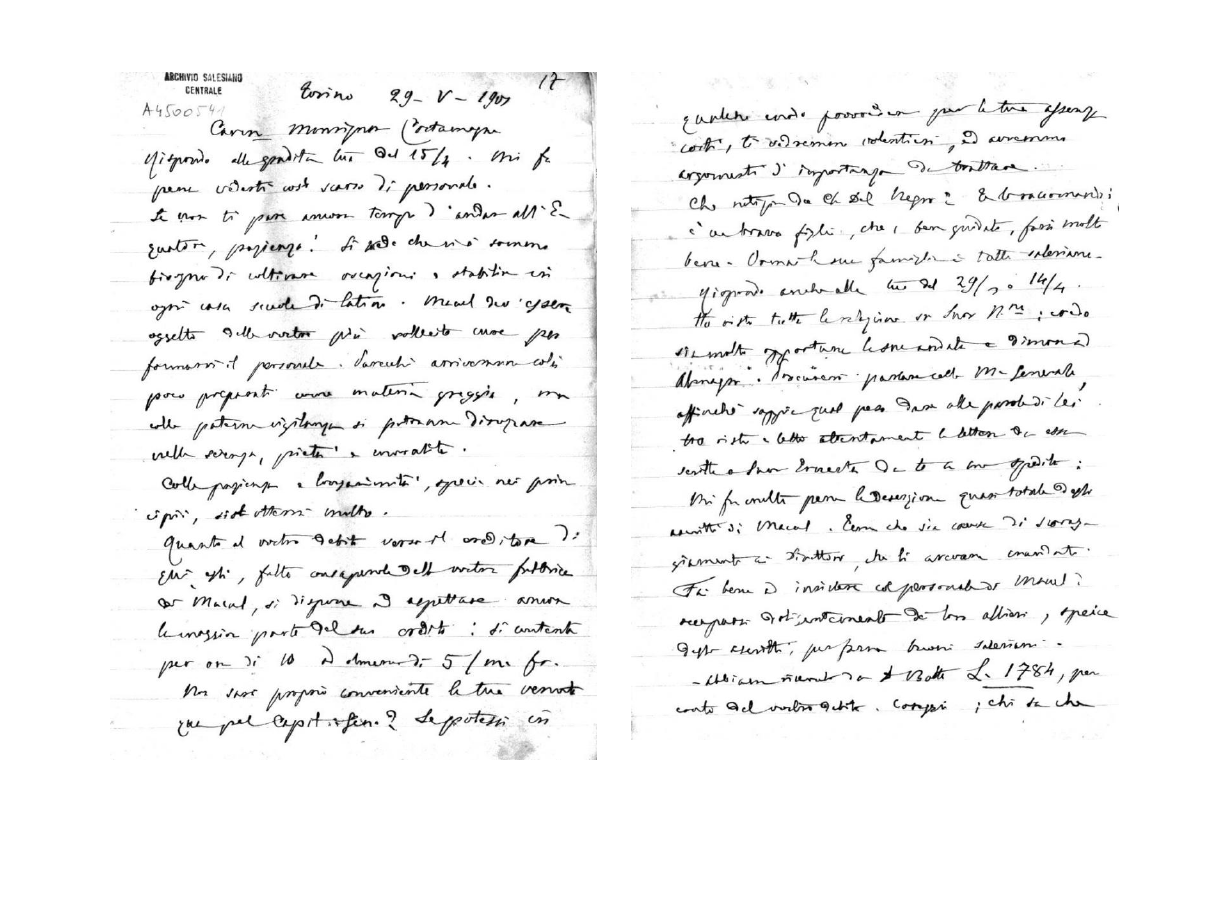 ARCHIVIO SALESIANO
CENTRALE
17
A4500541
Torino 29 - V - 1901
Carmo Monsignor Costamagna
Rispondo alla gradita tua del 15/4. Mi fa
pena vederti così scarso di personale.
Se non ti pare ancora tempo d'andar all'E-
quatore, pazienza! Si vede che vi è sommo
bisogno di coltivare vocazioni e stabilire in
ogni casa scuole di latino. Macul dev'essere
oggetto delle vostre più sollecite cure per
formarvi il personale. Parecchi arriveranno costì
poco preparati come materia greggia, ma
colla paterna vigilanza si potranno dirozzare
nella scienza, pietà e moralità.
Colla pazienza e longanimità, specie nei prin
cipii, si otterrà molto.
Quanto al vostro debito verso il creditore di
egli, fatto consapevole della vostra fabbrica
di Macul, si dispone ad aspettare ancora
la maggior parte del suo credito: si contenta
per ora di 10 od almeno di 5/m fr.
Non sarà proprio conveniente la tua venuta
qua pel Capit. Gen.? Se potessi in
qualche modo provvedere per la tua assenza
costì, ti vedremmo volentieri, ed avremmo
argomenti d'importanza da trattare.
Che notizia da Ch. Del Negro?
è un bravo figlio, che, ben guidato, farà molto
bene. Ormai la sua famiglia è tutta salesiana.
Rispondo anche alle tue del 29/3 e 14/4.
Ho visto tutta la relazione su Suor N.; credo
sia molto opportuna la sua andata a dimora ad
Almagro. Procurerò parlare colla M. Generale,
affinché sappia qual peso dare alle parole di lei.
Ho visto e letto attentamente la lettera da essa
scritta a Suor Ernesta da te a me spedita.
Mi fa molta pena la deserzione quasi totale degli
ascritti di Macul. Temo che sia causa di scorag-
giamento ai direttori, che li avevano mandati.
Fai bene ad insistere col personale di Macul:
occuparsi dei loro allievi, specie
degli ascritti, per farne buoni salesiani.
- Abbiamo ricevuto da D. Botta L. 1784, per
conto del vostro debito. Coraggio; chi sa che